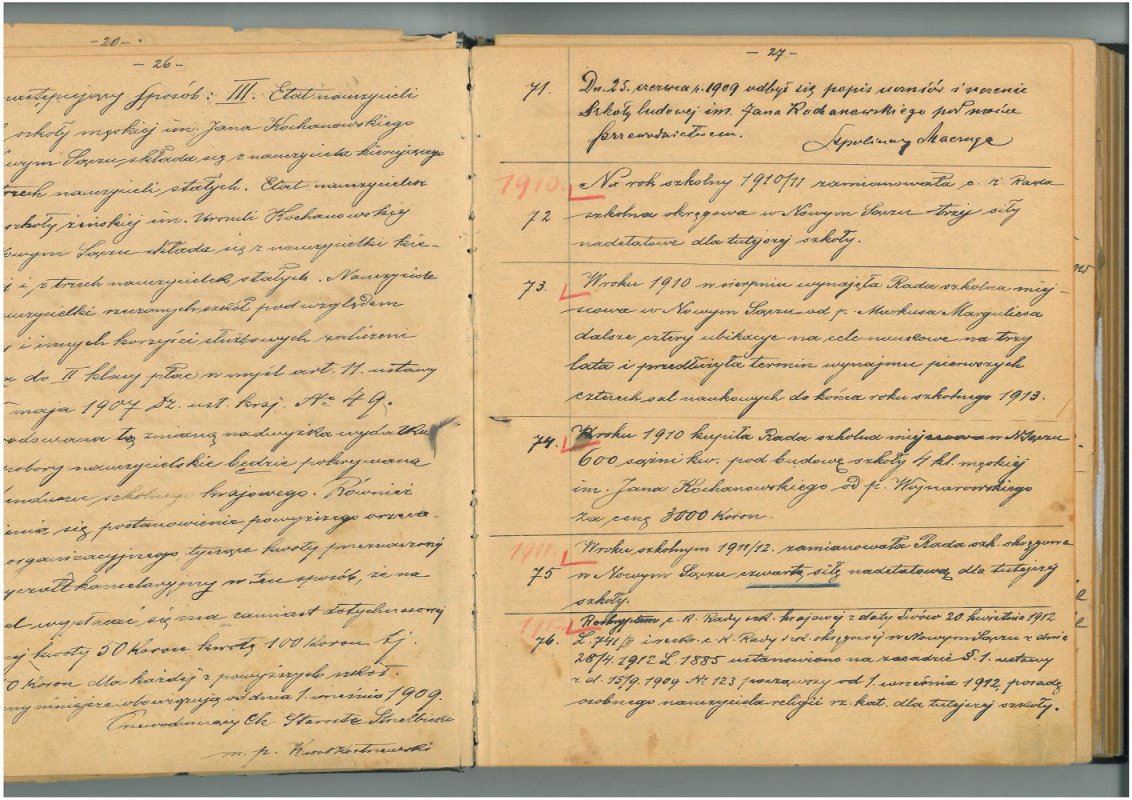 - 20 -
- 26 -
następujący sposób: III. Etat nauczycieli
szkoły męskiej im. Jana Kochanowskiego
Nowym Sączu składa się z nauczyciela kierującego
trzech nauczycieli stałych. Etat nauczycielek
szkoły żeńskiej im. Urszuli Kochanowskiej
Nowym Sączu składa się z nauczycielki kie-
i z trzech nauczycielek stałych. Nauczyciele
nauczycielki rzeczonych szkół pod względem
i innych korzyści służbowych zaliczeni
do II klasy płac w myśl art. 11. ustawy
maja 1907 Dz. ust. kraj. No 49.
tą zmianą nadwyżka wydatku
pobory nauczycielskie będzie pokrywana
funduszu szkolnego krajowego. Również
się postanowienie powyższego orzecze-
organizacyjnego tyczące kwoty przeznaczonej
kancelaryjny w ten sposób, że na
wypłacać się ma zamiast dotychczasowej
kwoty 50 koron kwotę 100 koron tj.
0 koron dla każdej z powyższych szkół.
niniejsze obowiązują od dnia 1. września 1909.
Przewodniczący Ck Starosta
m. p.
- 27 -
71. Dn. 25. czerwca r. 1909 odbył się popis uczniów i uczenic
Szkoły ludowej im. Jana Kochanowskiego pod moim
przewodnictwem.
Apolinary Maczuga
1910. Na rok szkolny 1910/11 zamianowała c. k. Rada
72 szkolna okręgowa w Nowym Sączu trzy siły
nadetatowe dla tutejszej szkoły.
73. W roku 1910 w sierpniu wynajęła Rada szkolna miej-
scowa w Nowym Sączu od p. Markusa Marguliesa
dalsze cztery ubikacje na cele naukowe na trzy
lata i przedłużyła termin wynajmu pierwszych
czterech sal naukowych do końca roku szkolnego 1913.
74. W roku 1910 kupiła Rada szkolna miejscowa w N. Sączu
600 sążni kw. pod budowę szkoły 4 kl. męskiej
im. Jana Kochanowskiego od p. Wojnarowskiego
za cenę 3000 Koron.
1911. W roku szkolnym 1911/12. zamianowała Rada szk. okręgowa
75 w Nowym Sączu czwartą siłę nadetatową dla tutejszej
szkoły.
1912. Reskryptem c. k. Rady szk. krajowej z daty Lwów 20 kwietnia 1912
76. L. 741/IV i reskr. c. k. Rady szk. okręgowej w Nowym Sączu z dnia
28/4. 1912 L. 1885 ustanowiono na zasadzie §. 1. ustawy
z d. 15/9. 1909 Nr 123 począwszy od 1. września 1912, posadę
osobnego nauczyciela religii rz. kat. dla tutejszej szkoły.